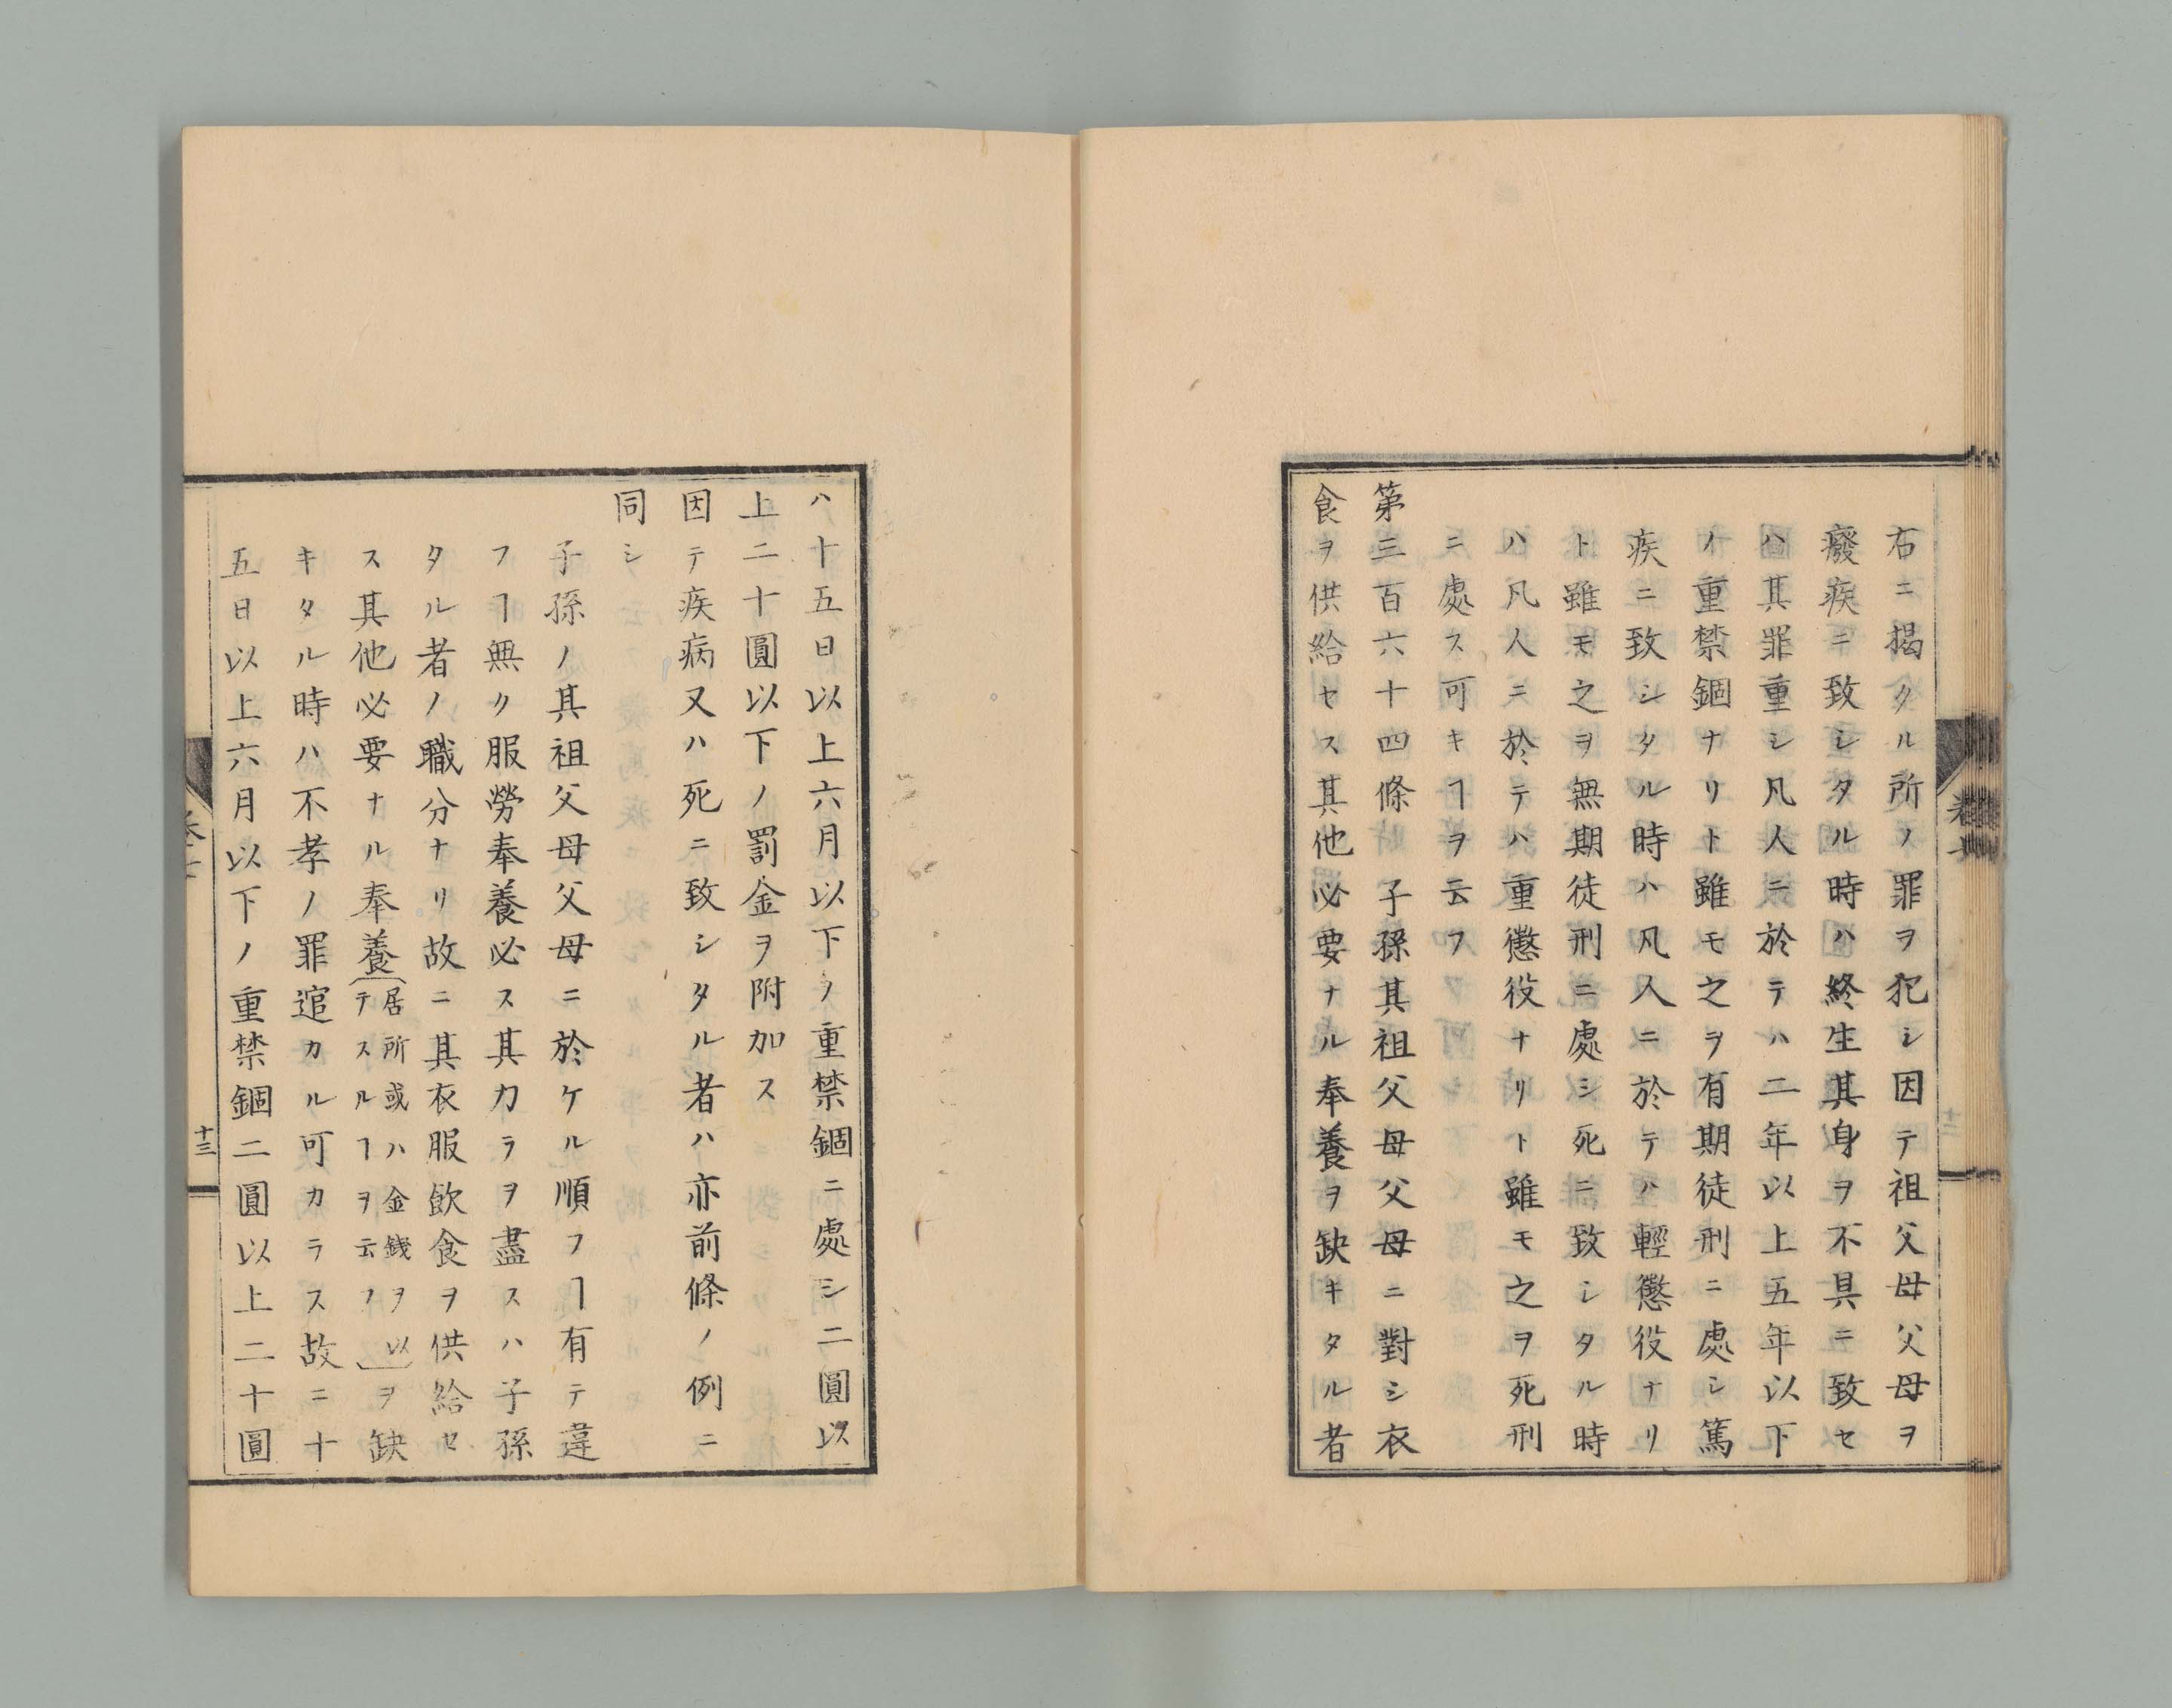 右ニ揭タル所ノ罪ヲ犯シ因テ祖父母父母ヲ
癈疾ニ致シタル時ハ終生其身ヲ不具ニ致セ
ハ其罪重シ凡人ニ於テハ二年以上五年以下
ノ重禁錮ナリト雖モ之ヲ有期徒刑ニ處シ篤
疾ニ致シタル時ハ凡人ニ於テハ輕懲役ナリ
ト雖モ之ヲ無期徒刑ニ處シ死ニ致シタル時
ハ凡人ニ於テハ重懲役ナリト雖モ之ヲ死刑
ニ處ス可キヿヲ云フ
第三百六十四條 子孫其祖父母父母ニ對シ衣
食ヲ供給セス其他必要ナル奉養ヲ缺キタル者
ハ十五日以上六月以下ノ重禁錮ニ處シ二圓以
上二十圓以下ノ罰金ヲ附加ス
因テ疾病又ハ死ニ致シタル者ハ亦前條ノ例ニ
同シ
子孫ノ其祖父母父母ニ於ケル順フヿ有テ違
フヿ無ク服勞奉養必ス其力ラヲ盡スハ子孫
タル者ノ職分ナリ故ニ其衣服飲食ヲ供給セ
ス其他必要ナル奉養(居所或ハ金錢ヲ以テスルヿヲ云フ)ヲ缺
キタル時ハ不孝ノ罪逭カル可カラス故ニ十
五日以上六月以下ノ重禁錮二圓以上二十圓
十三